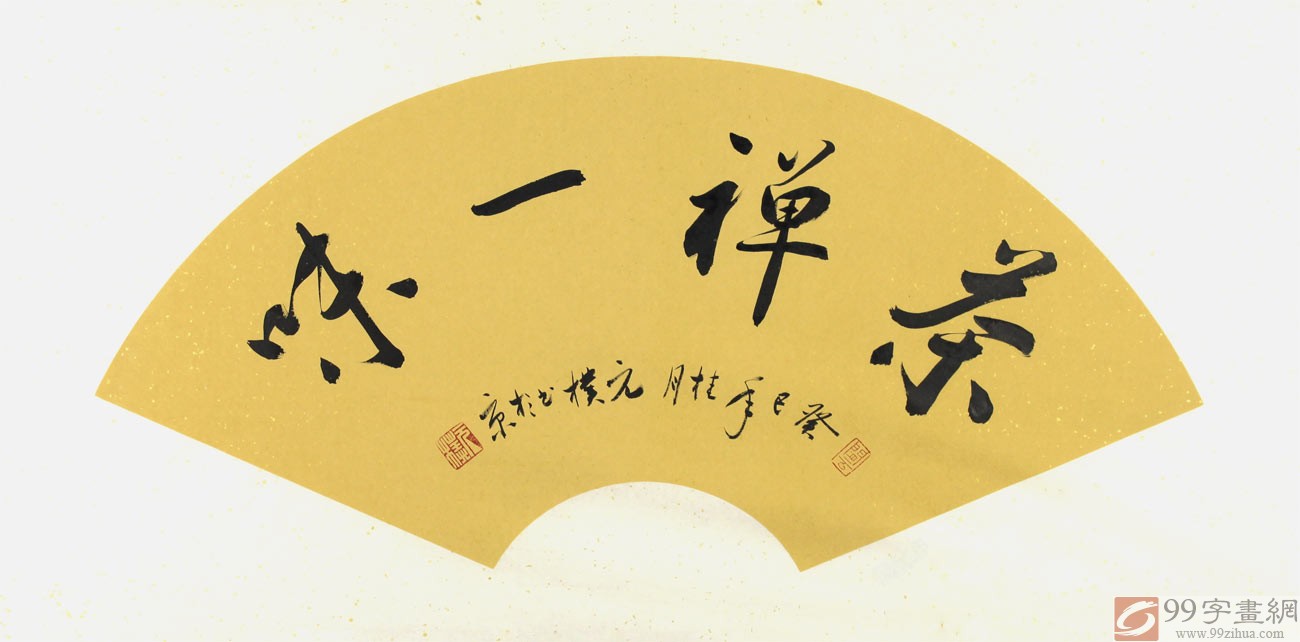 茶禅一味
癸巳年桂月元樸书於京
99字畫網
www.99zihua.com